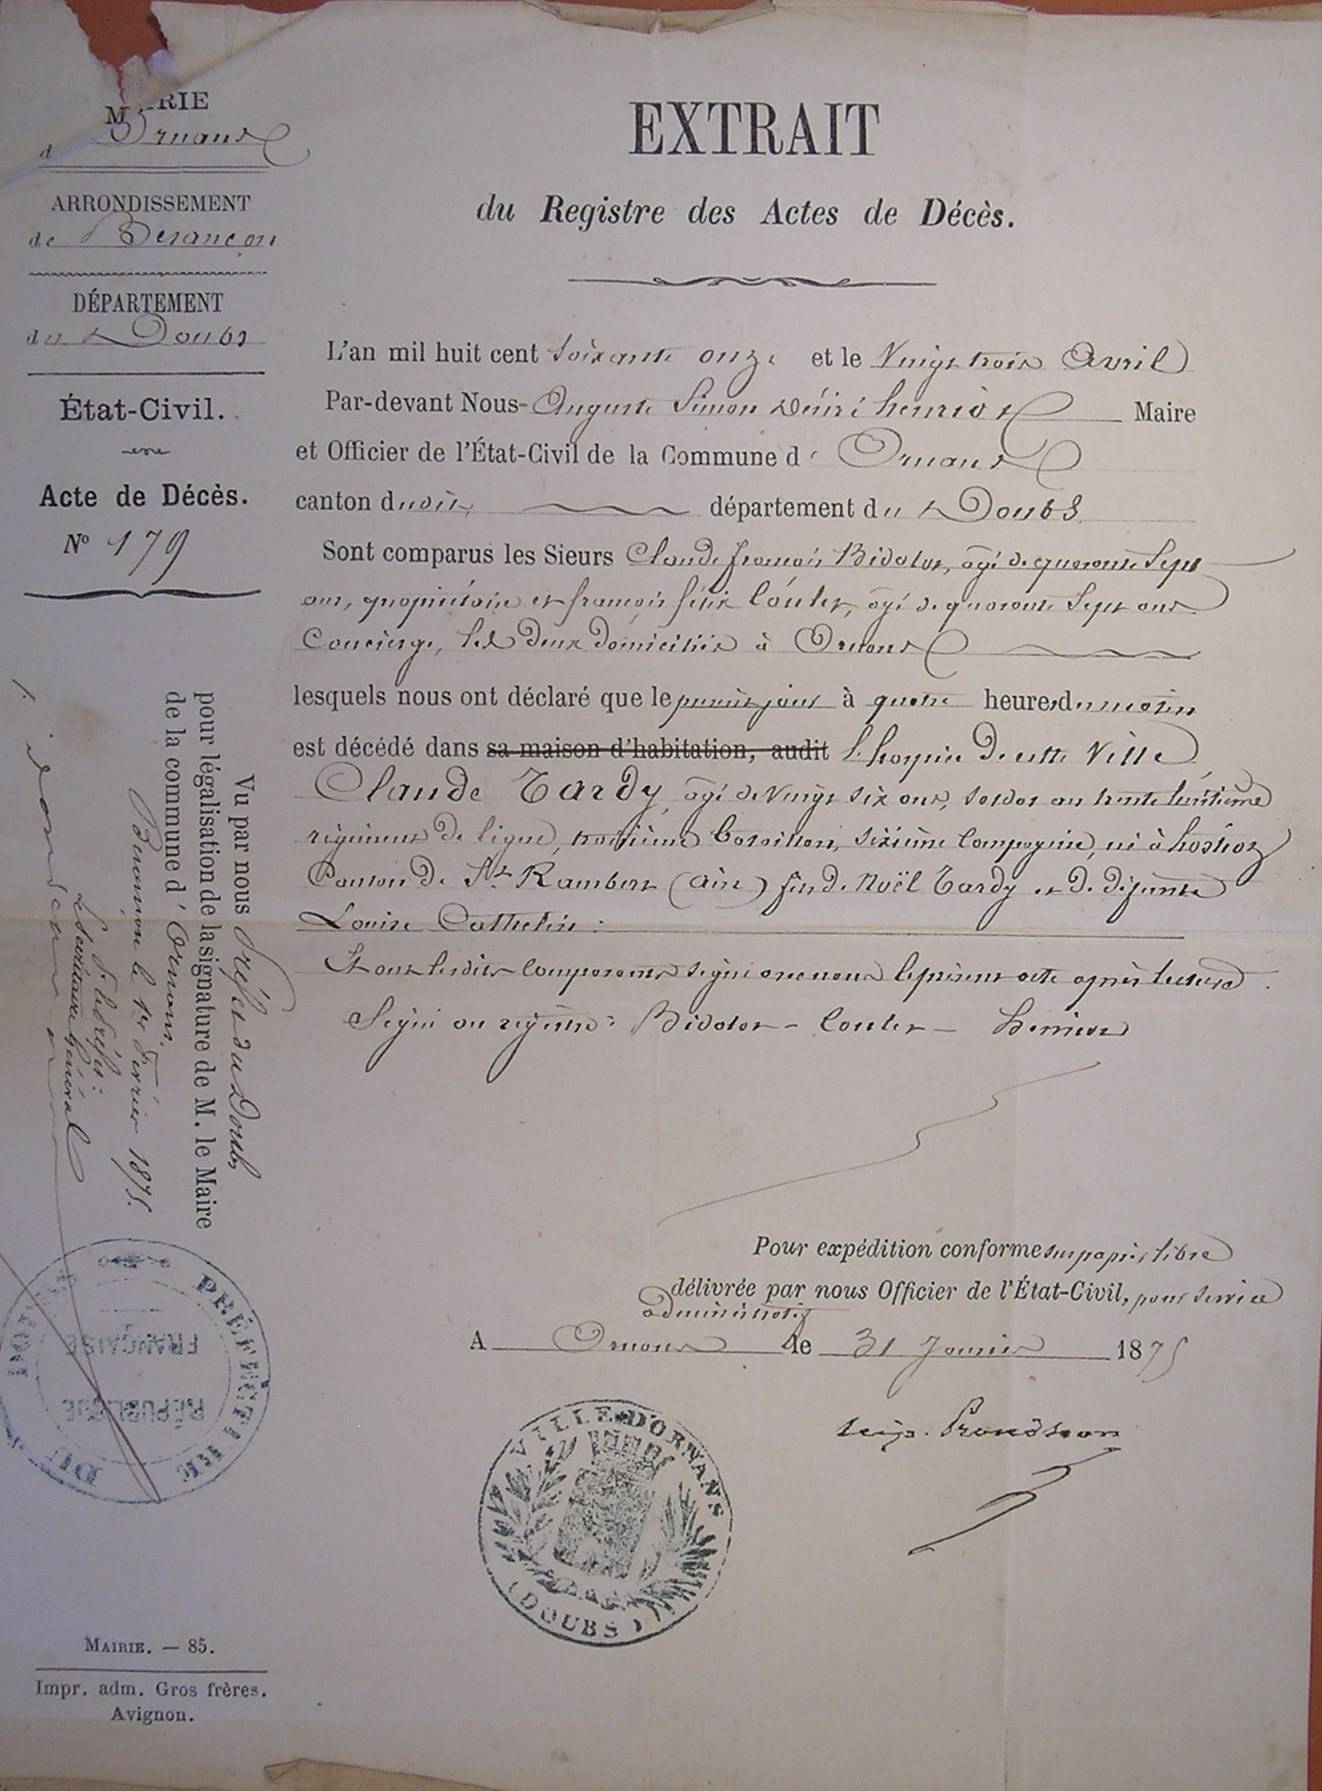 MAIRIE
d Ornans
ARRONDISSEMENT
de Besançon
DÉPARTEMENT
du Doubs
État-Civil.
Acte de Décès.
N° 179
EXTRAIT
du Registre des Actes de Décès.
L'an mil huit cent soixante onze et le Vingt trois Avril
Par-devant Nous Auguste Simon Désiré henriot Maire
et Officier de l'État-Civil de la Commune d' Ornans
canton dudit, département du Doubs
Sont comparus les Sieurs Claude françois Bidalot, âgé de quarante Sept
ans, propriétaire et françois félix Coulet, âgé de quarante Sept ans
Concierge, les deux domiciliés à Ornans
lesquels nous ont déclaré que le jour à quatre heures du matin
est décédé dans sa maison d'habitation, audit l'hospice de cette Ville
Claude Tardy, âgé de Vingt six ans, soldat au trente huitième
régiment de ligne, troisième bataillon, sixième compagnie, né à
Canton de St Rambert (Ain) fils de Noël Tardy et de défunte
Louise Cathelin :
Et ont lesdits comparants signé avec nous le présent acte après lecture.
Signé au registre : Bidalot - Coulet - henriot
Pour expédition conforme sur papier libre
délivrée par nous Officier de l'État-Civil, pour service
administratif
A Ornans le 31 Janvier 1875
Proudhon
VILLE D'ORNANS
(DOUBS)
Vu par nous Préfet du Doubs,
pour légalisation de la signature de M. le Maire
de la commune d' Ornans.
Besançon le 1er Février 1875.
P. le Préfet :
Le Secrétaire Général
PRÉFECTURE DU DOUBS
RÉPUBLIQUE
FRANÇAISE
MAIRIE. — 85.
Impr. adm. Gros frères.
Avignon.